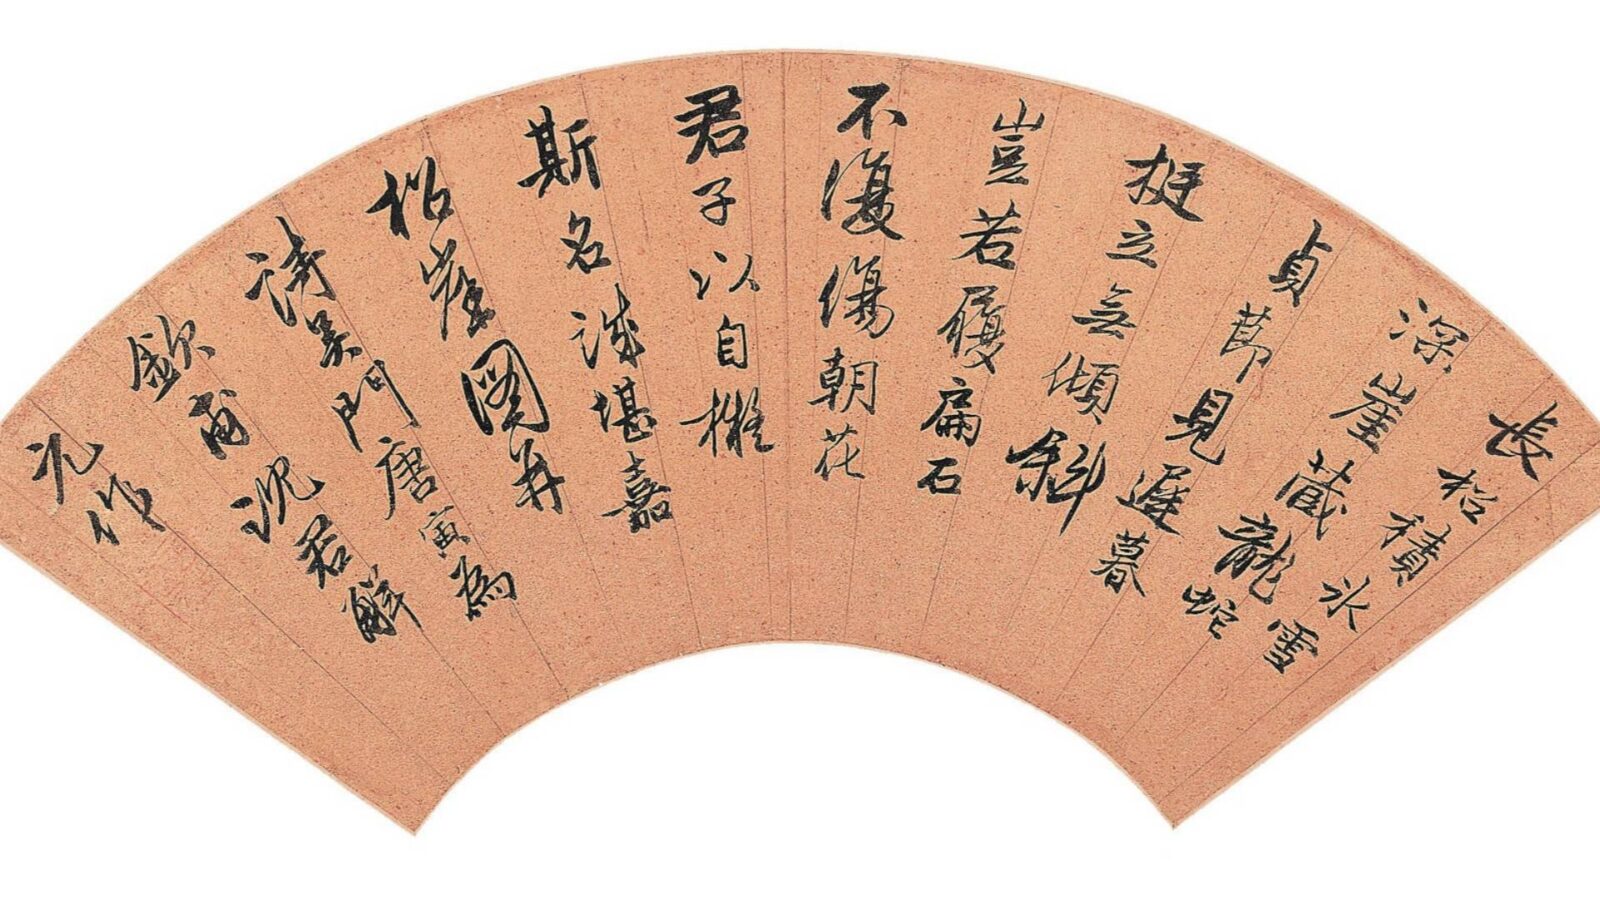 長松積冰雪
深崖藏龍蛇
貞節見遲暮
挺立無傾斜
豈若履扁石
不復傷朝花
君子以自擬
斯名誠堪嘉
松崖圖并
詩吴門唐寅為
欽甫沈君解
元作